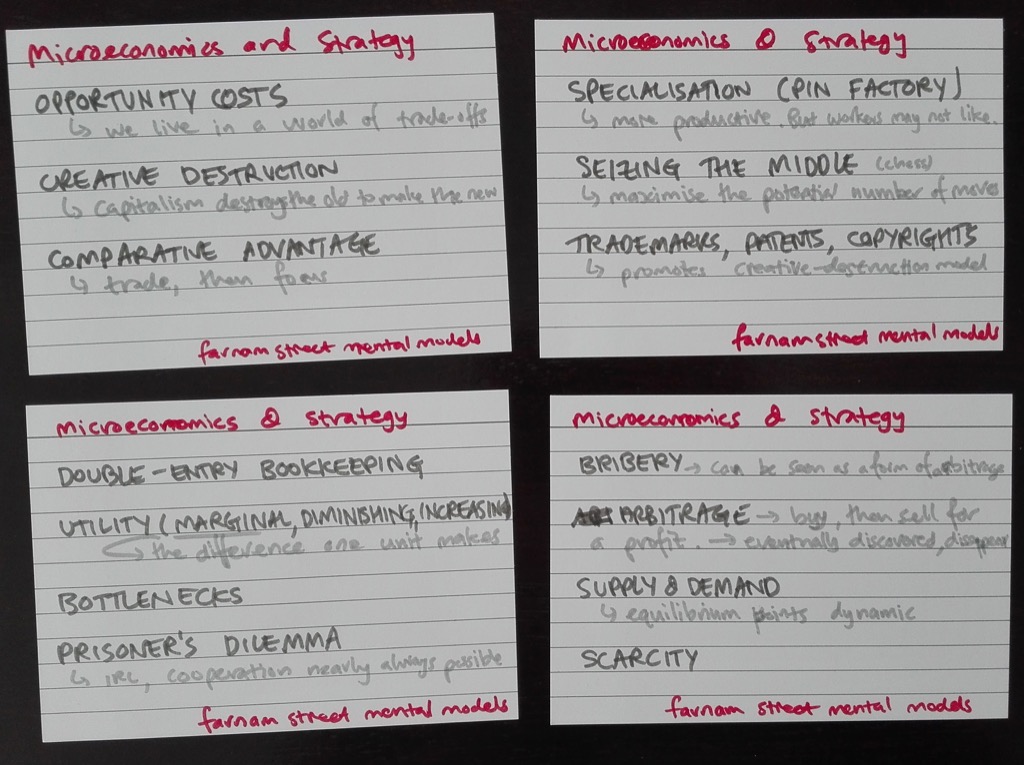 Microeconomics and Strategy
OPPORTUNITY COSTS
↳ we live in a world of trade-offs
CREATIVE DESTRUCTION
↳ capitalism destroys the old to make the new
COMPARATIVE ADVANTAGE
↳ trade, then focus
farnam street mental models
Microeconomics & Strategy
SPECIALISATION (PIN FACTORY)
↳ more productive. But workers may not like.
SEIZING THE MIDDLE (chess)
↳ maximise the potential number of moves
TRADEMARKS, PATENTS, COPYRIGHTS
↳ promotes creative-destruction model
farnam street mental models
microeconomics & strategy
DOUBLE-ENTRY BOOKKEEPING
UTILITY (MARGINAL, DIMINISHING, INCREASING)
↳ the difference one unit makes
BOTTLENECKS
PRISONER'S DILEMMA
↳ IRL, cooperation nearly always possible
farnam street mental models
microeconomics & strategy
BRIBERY → can be seen as a form of arbitrage
ARBITRAGE → buy, then sell for
a profit. → eventually discovered, disappear
SUPPLY & DEMAND
↳ equilibrium points dynamic
SCARCITY
farnam street mental models